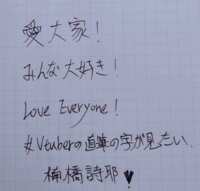 愛大家！
みんな大好き！
Love Everyone！
#Vtuberの直筆の字が見たい
楠橋詩耶